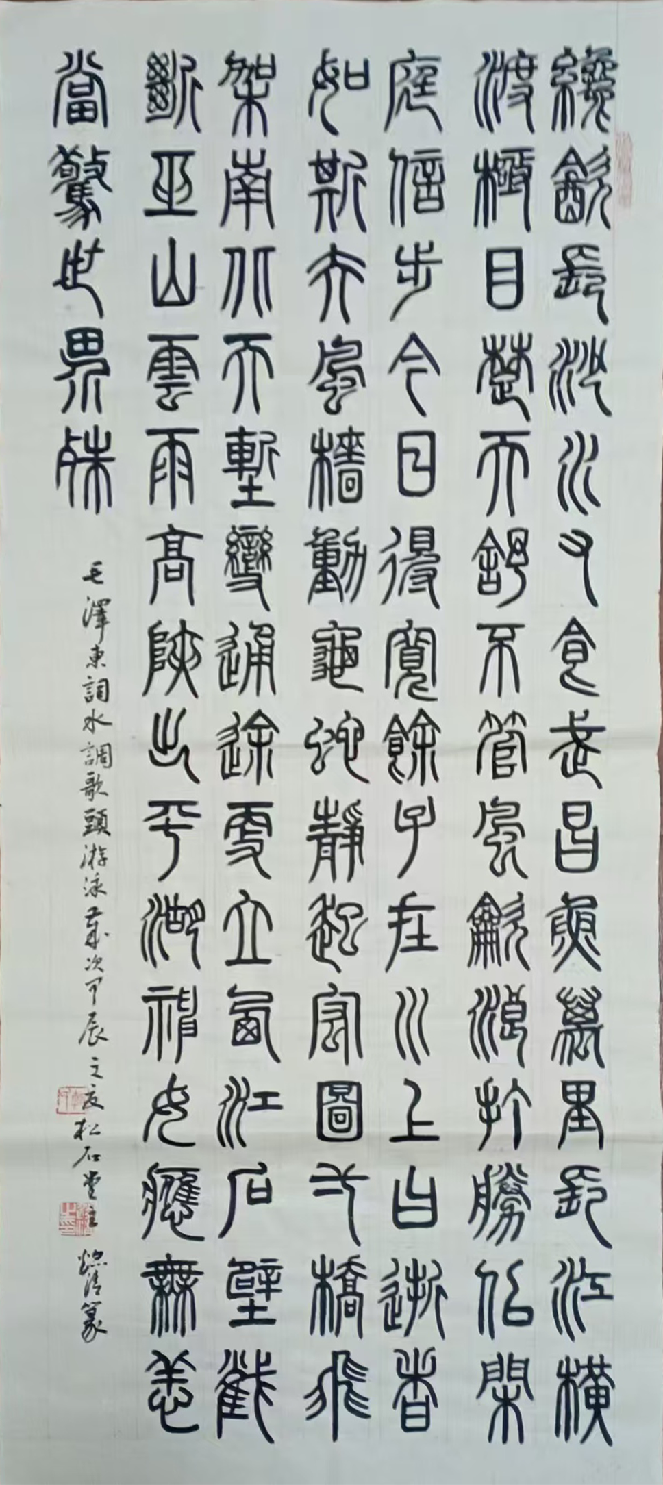 纔飲長沙水又食武昌魚萬里長江橫
渡極目楚天舒不管風龡浪打勝似閑
庭信步今日得寬餘子在川上曰逝者
如斯夫風檣動龜蛇靜起宏圖弌橋飛
架南北天塹變通途更立西江石壁截
斷巫山雲雨高峽出平湖神女應無恙
當驚世界殊
毛澤東詞水調歌頭游泳歲次甲辰之夏松石堂主篆